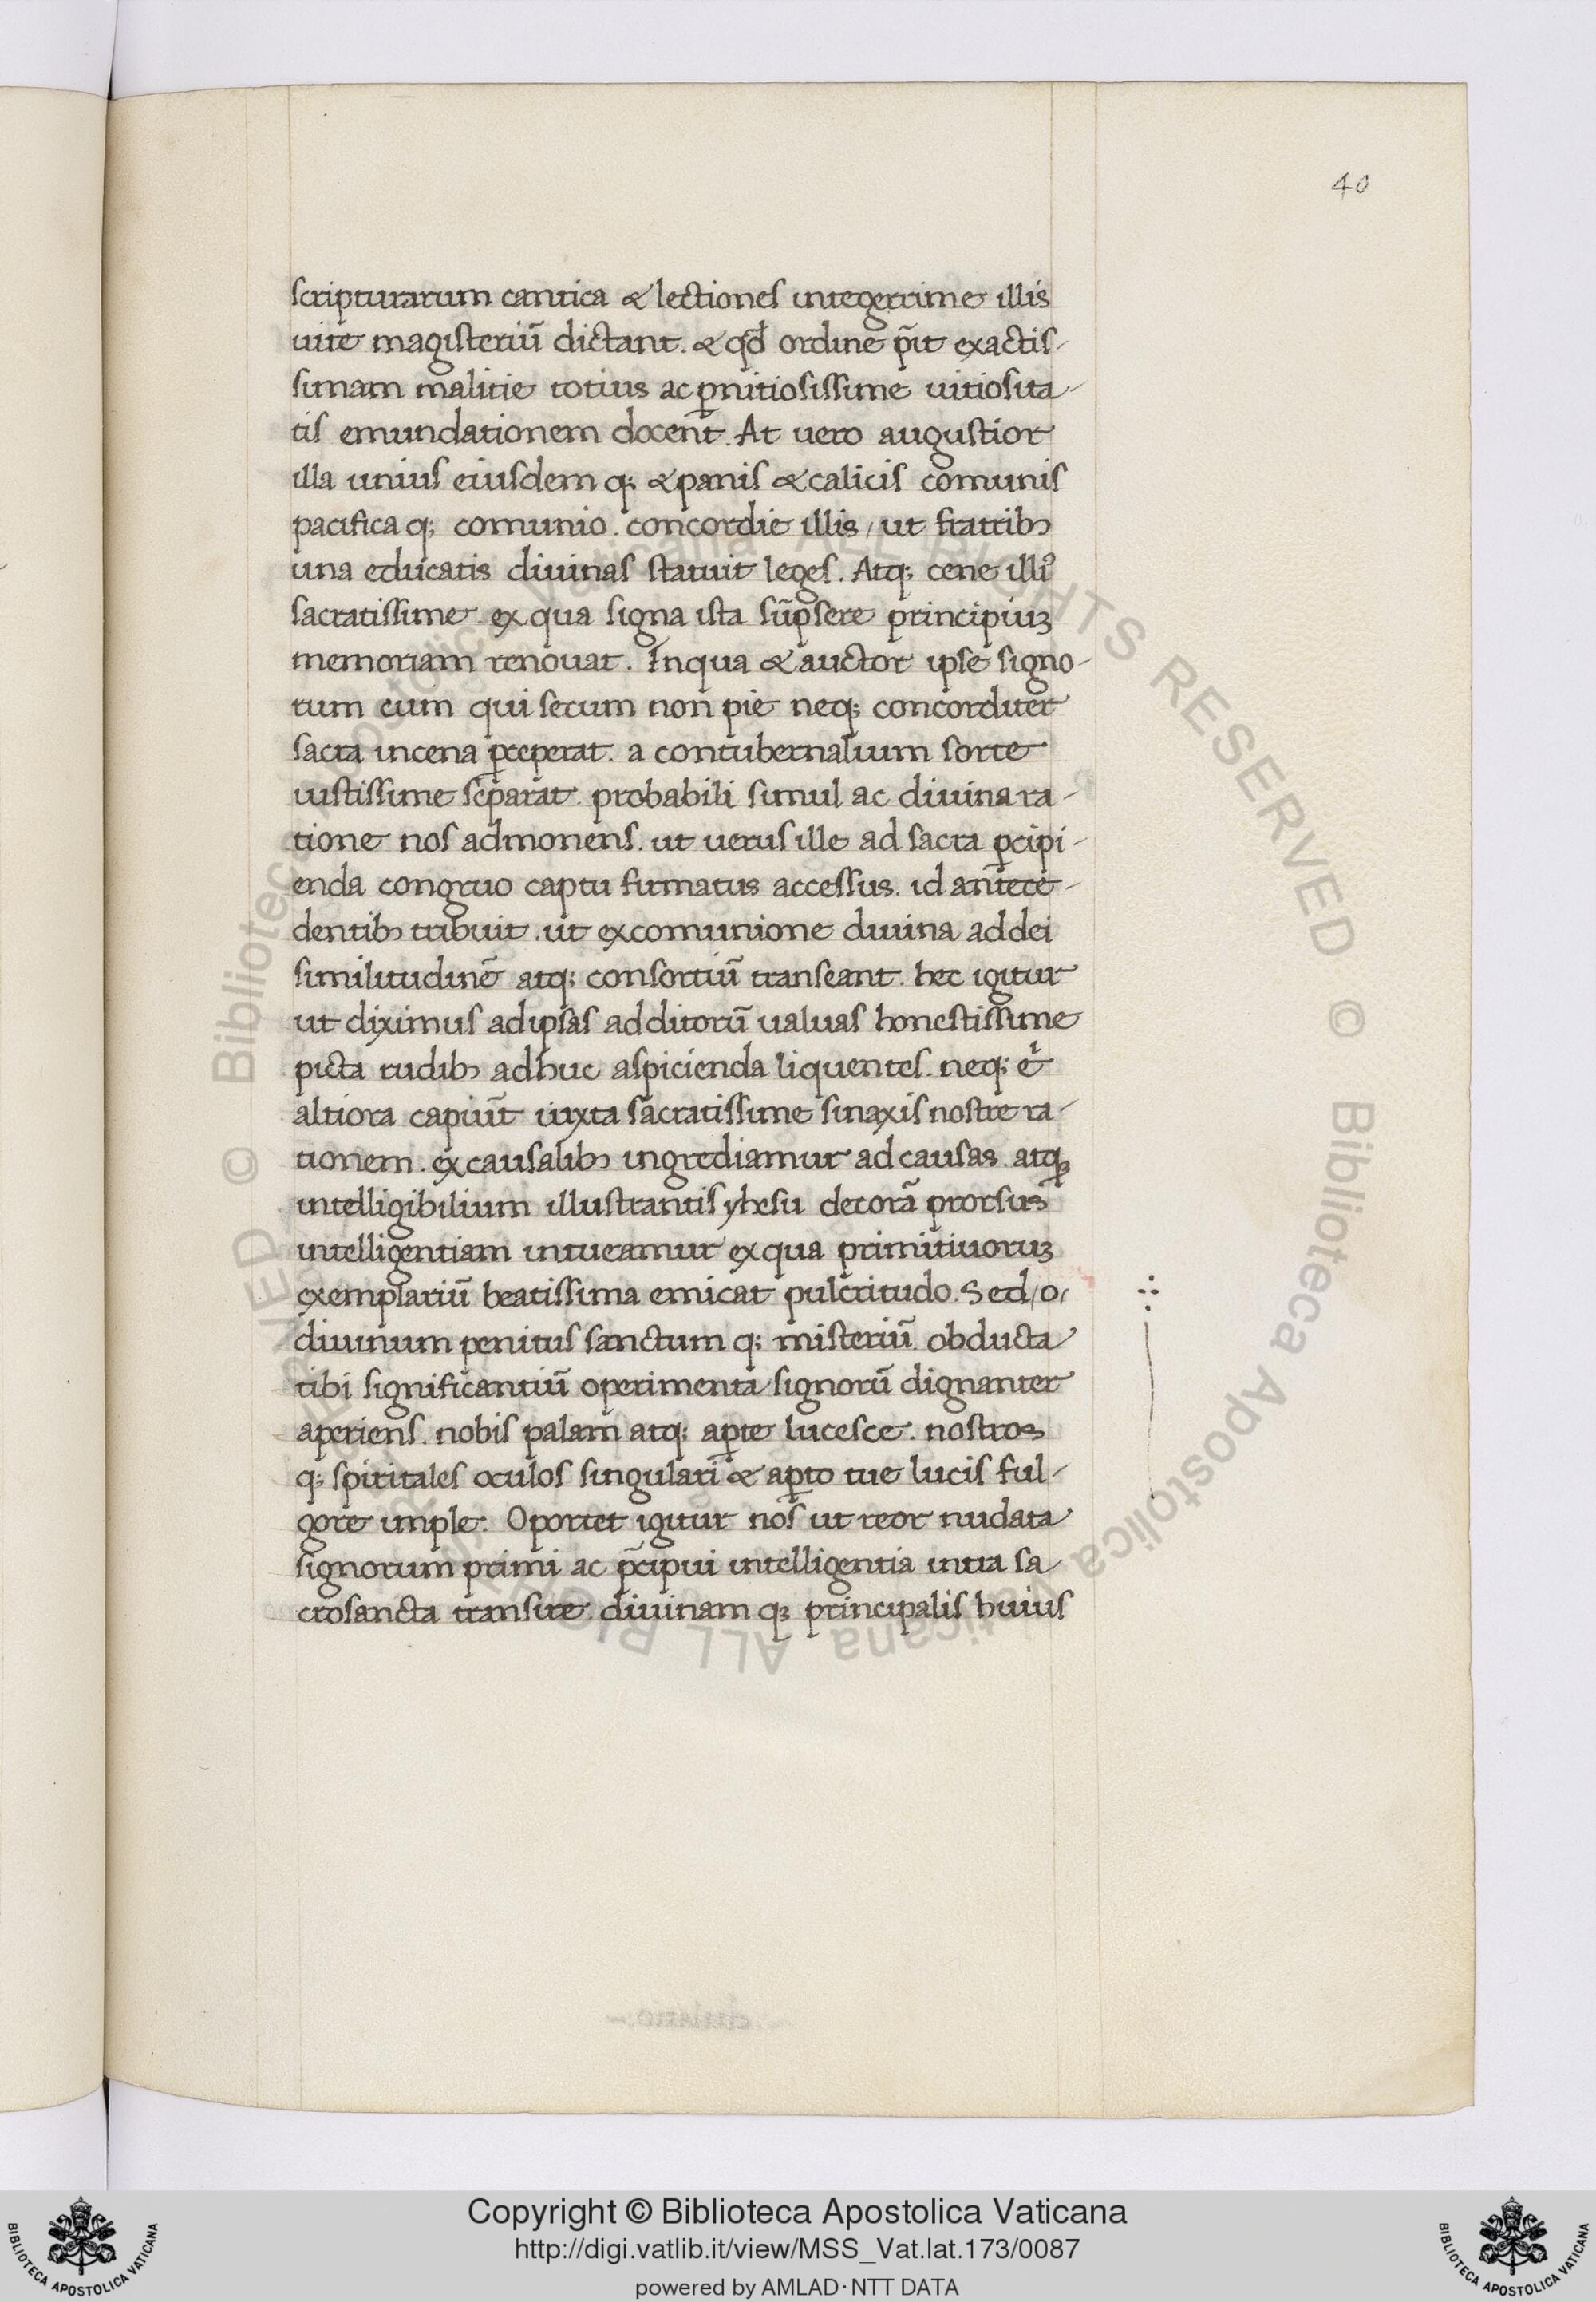 40
scripturarum cantica & lectiones integerrime illis
uite magisteriū dictant. & qd̄ ordine p̄it exactis-
simam malitie totius ac ꝑnitiosissime uitiosita-
tis emundationem docent̄. At uero augustior
illa unius eiusdem q; & panis & calicis comunis
pacifica q; comunio. concordie illis / ut fratribꝫ
una educatis diuinas statuit leges. Atq; cene illiꝰ
sacratissime. ex qua signa ista sūpsere principiuꝫ
memoriam renouat. In qua & auctor ipse signo-
rum eum qui secum non pie neq; concorditer
sacra in cena ꝑceperat. a contubernalium sorte
iustissime seꝑarat. probabili simul ac diuina ra-
tione nos admonens. ut uerus ille ad sacra ꝑcipi-
enda congruo captu firmatus accessus. id an̄tece-
dentibꝫ tribuit. ut ex comunione diuina ad dei
similitudinē atq; consortiū transeant. hec igitur
ut diximus ad ipsas additorū ualuas honestissime
picta rudibꝫ adhuc aspicienda liquentes. neq; .n.
altiora capiūt iuxta sacratissime sinaxis nostre ra-
tionem. ex causalibꝫ ingrediamur ad causas. atqꝫ
intelligibilium illustrantis yhesu decorā prorsus
intelligentiam intueamur ex qua primitiuoruꝫ
exemplariū beatissima emicat pulcritudo. Sed / o /
diuinum penitus sanctum q; misteriū. obducta
tibi significantiū operimenta signorū dignanter
aperiens. nobis palam atq; aꝑte lucesce. nostros
q; spiritales oculos singulari & aꝑto tue lucis ful-
gore imple. Oportet igitur nos ut reor nudata
signorum primi ac p̄cipui intelligentia intra sa-
crosancta transire. diuinam qꝫ principalis huius
Copyright © Biblioteca Apostolica Vaticana
http://digi.vatlib.it/view/MSS_Vat.lat.173/0087
powered by AMLAD·NTT DATA
BIBLIOTECA APOSTOLICA VATICANA
BIBLIOTECA APOSTOLICA VATICANA